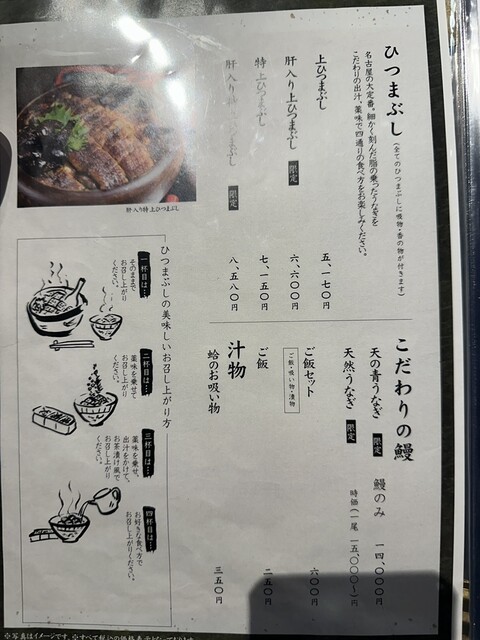 ひつまぶし（全てのひつまぶしに吸物・香の物が付きます）
名古屋の大定番。細かく刻んだ脂の乗ったうなぎを
こだわりの出汁、薬味で四通りの食べ方をお楽しみください。
上ひつまぶし 五、一七〇円
肝入り上ひつまぶし 限定 六、六〇〇円
特上ひつまぶし 七、一五〇円
肝入り特上ひつまぶし 限定 八、五八〇円
肝入り特上ひつまぶし
こだわりの鰻
天の青うなぎ 限定 鰻のみ 一四、〇〇〇円
天然うなぎ 限定 時価（一尾 一五、〇〇〇〜）円
ご飯セット 六〇〇円
ご飯・吸い物・漬物
ご飯 二五〇円
汁物
蛤のお吸い物 三五〇円
ひつまぶしの美味しいお召し上がり方
一杯目は…
そのままで
お召し上がり
ください。
二杯目は…
薬味を乗せて
お召し上がり
ください。
三杯目は…
薬味を乗せ、
出汁をかけて、
お茶漬け風で
お召し上がり
ください。
四杯目は…
お好きな食べ方で
お召し上がりください。
※写真はイメージです。※すべて税込の価格表示となっております。